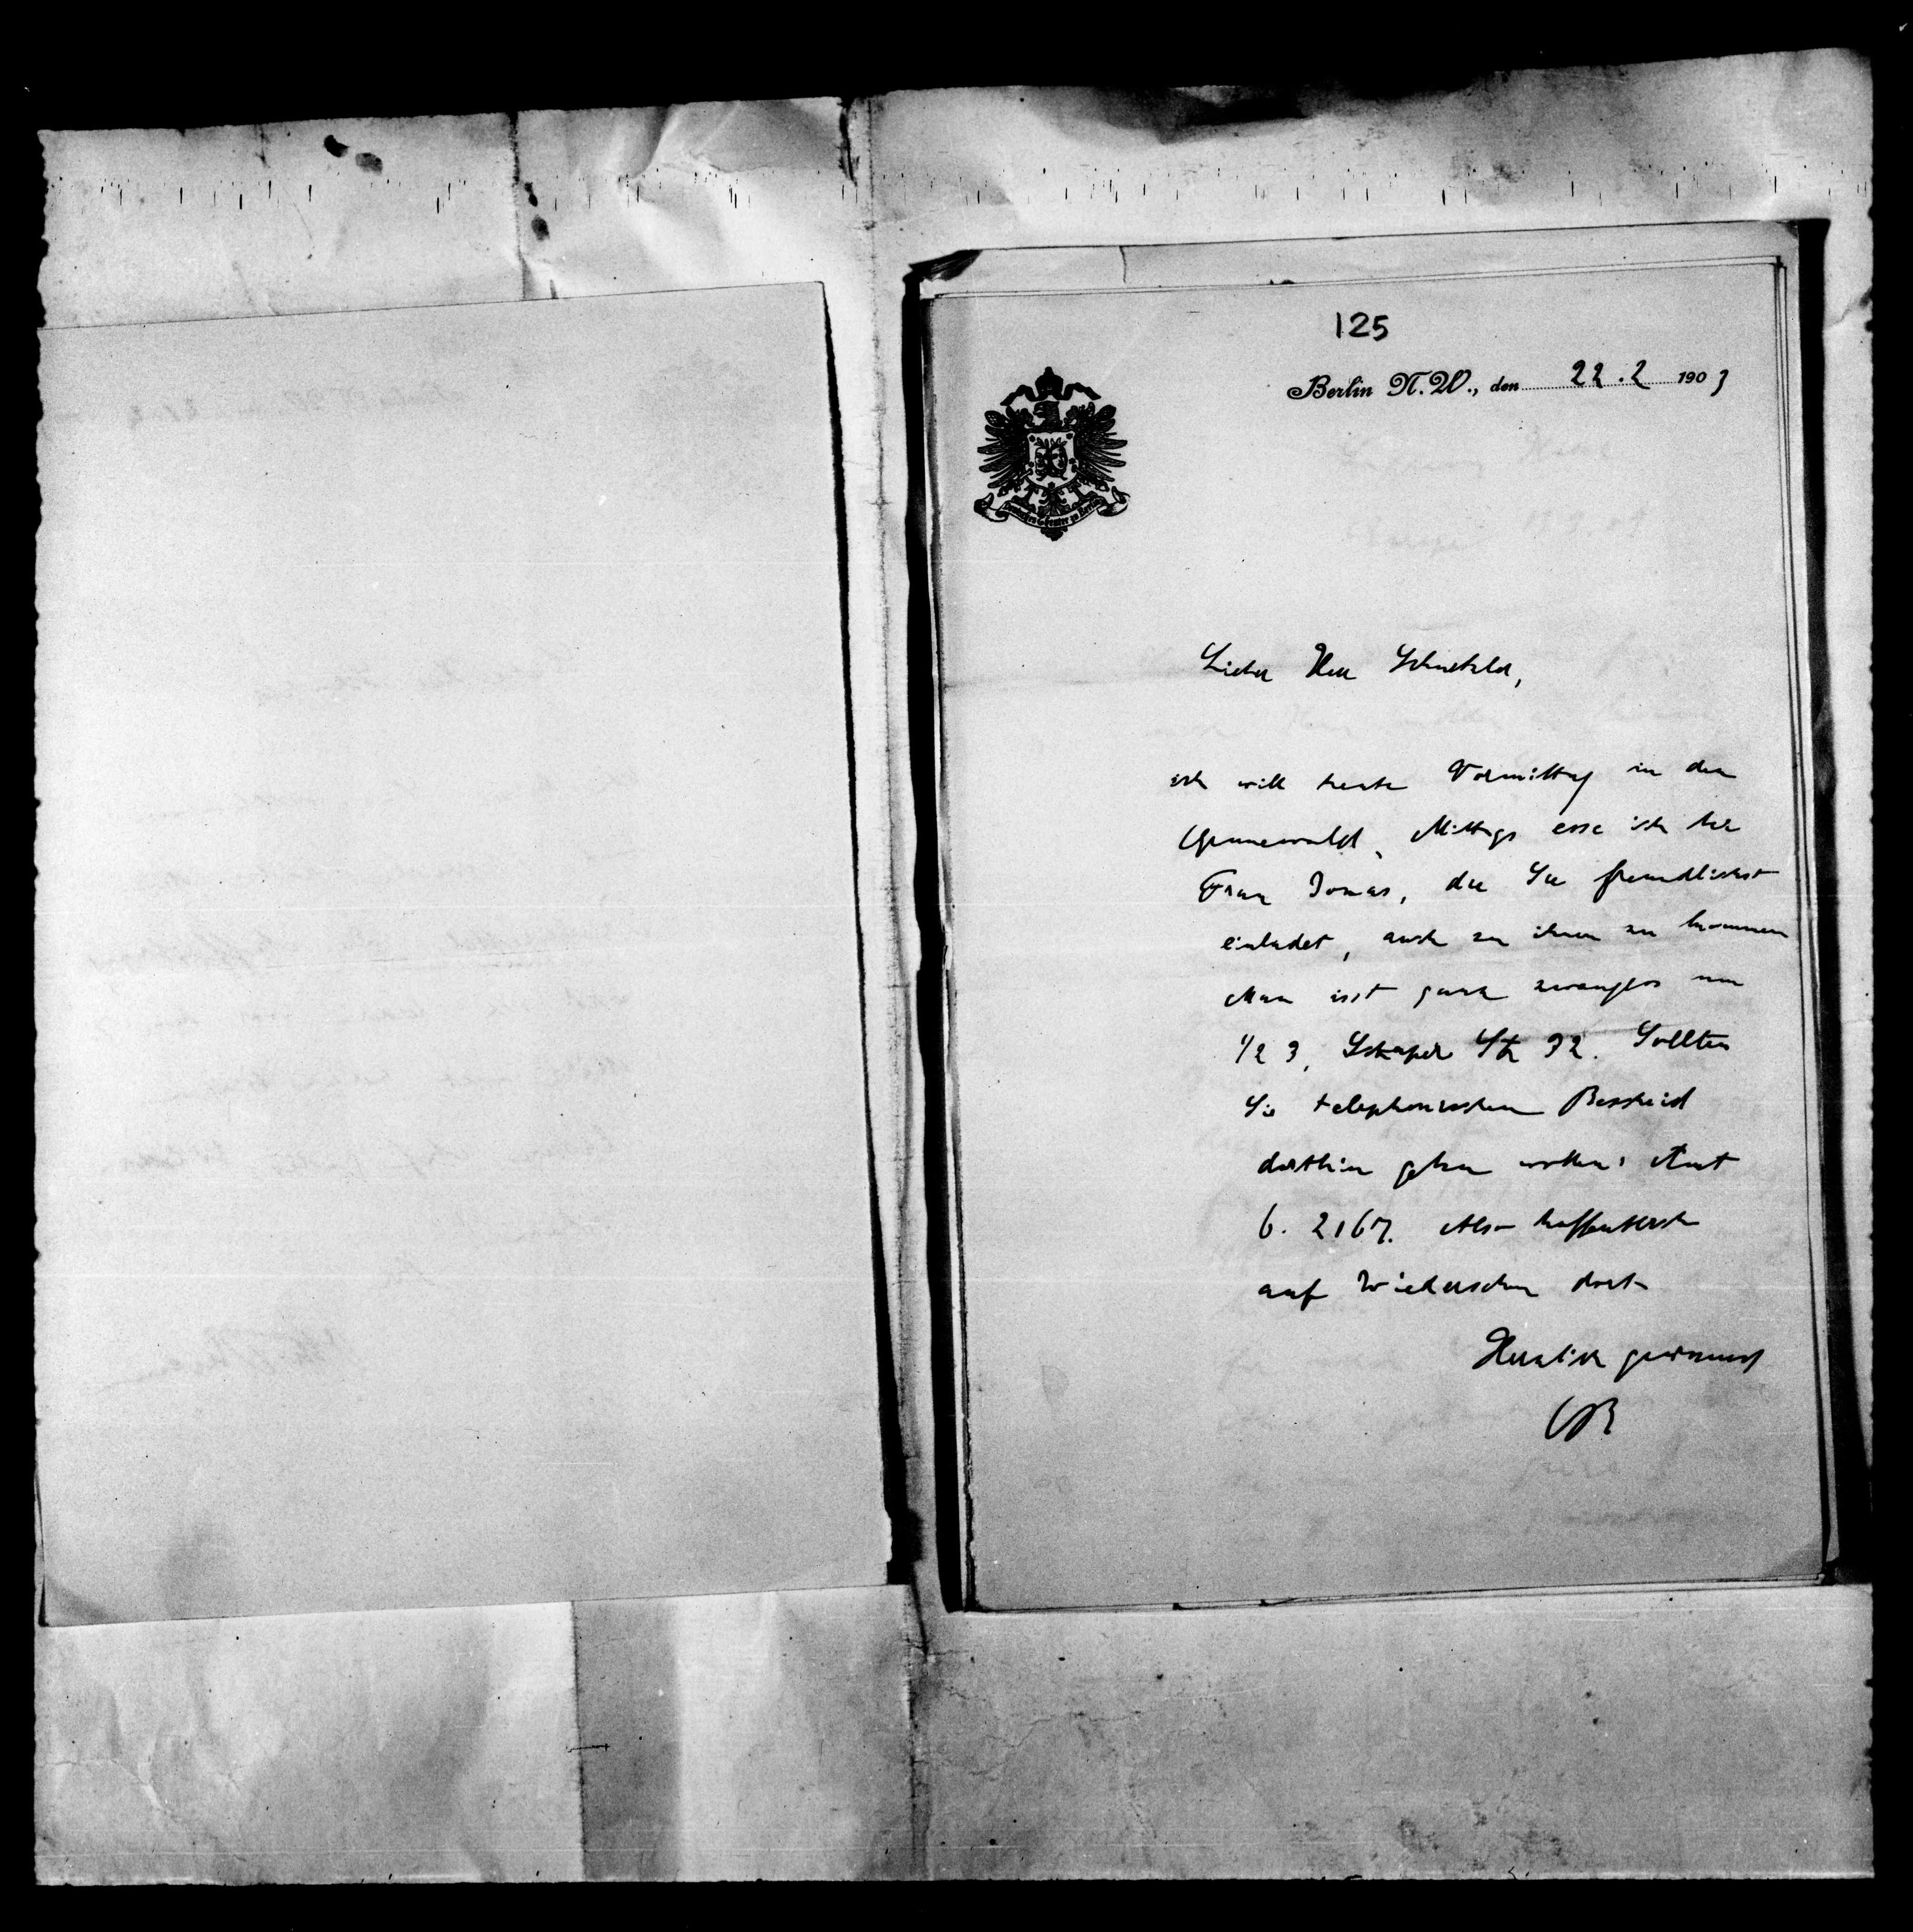 125
Berlin N.W., den 22.2 1903
Deutsches Theater zu Berlin
Lieber Herr Schnitzler,
ich will heute Vormittag in den
Grunewald, Mittags esse ich bei
Frau Jonas, die Sie freundlichst
einladet, auch zu ihnen zu kommen
Man isst ganz zwanglos um
1/2 3, Schaper Str 32. Sollten
Sie telephonischen Bescheid
dorthin geben wollen: Amt
6. 2167. Also hoffentlich
auf Wiedersehen dort
Herzlich grüssend